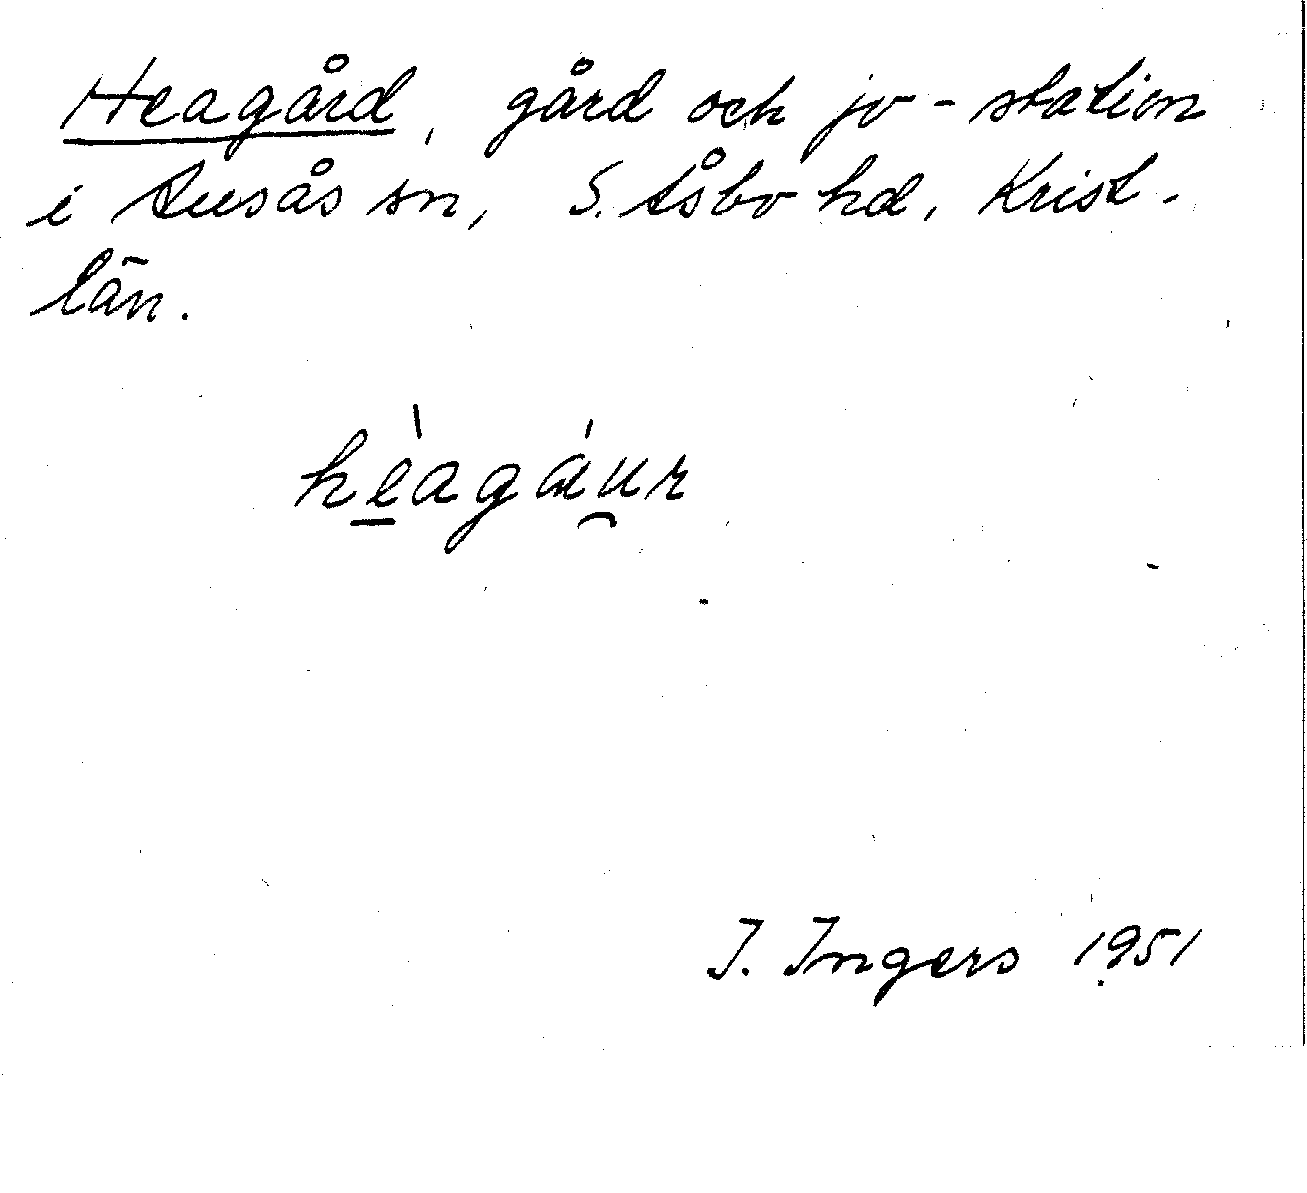 Heagård, gård och jv-station
i Ausås sn, S. Åsbo hd, Krist.
län.
hèagáur
I. Ingers 1951